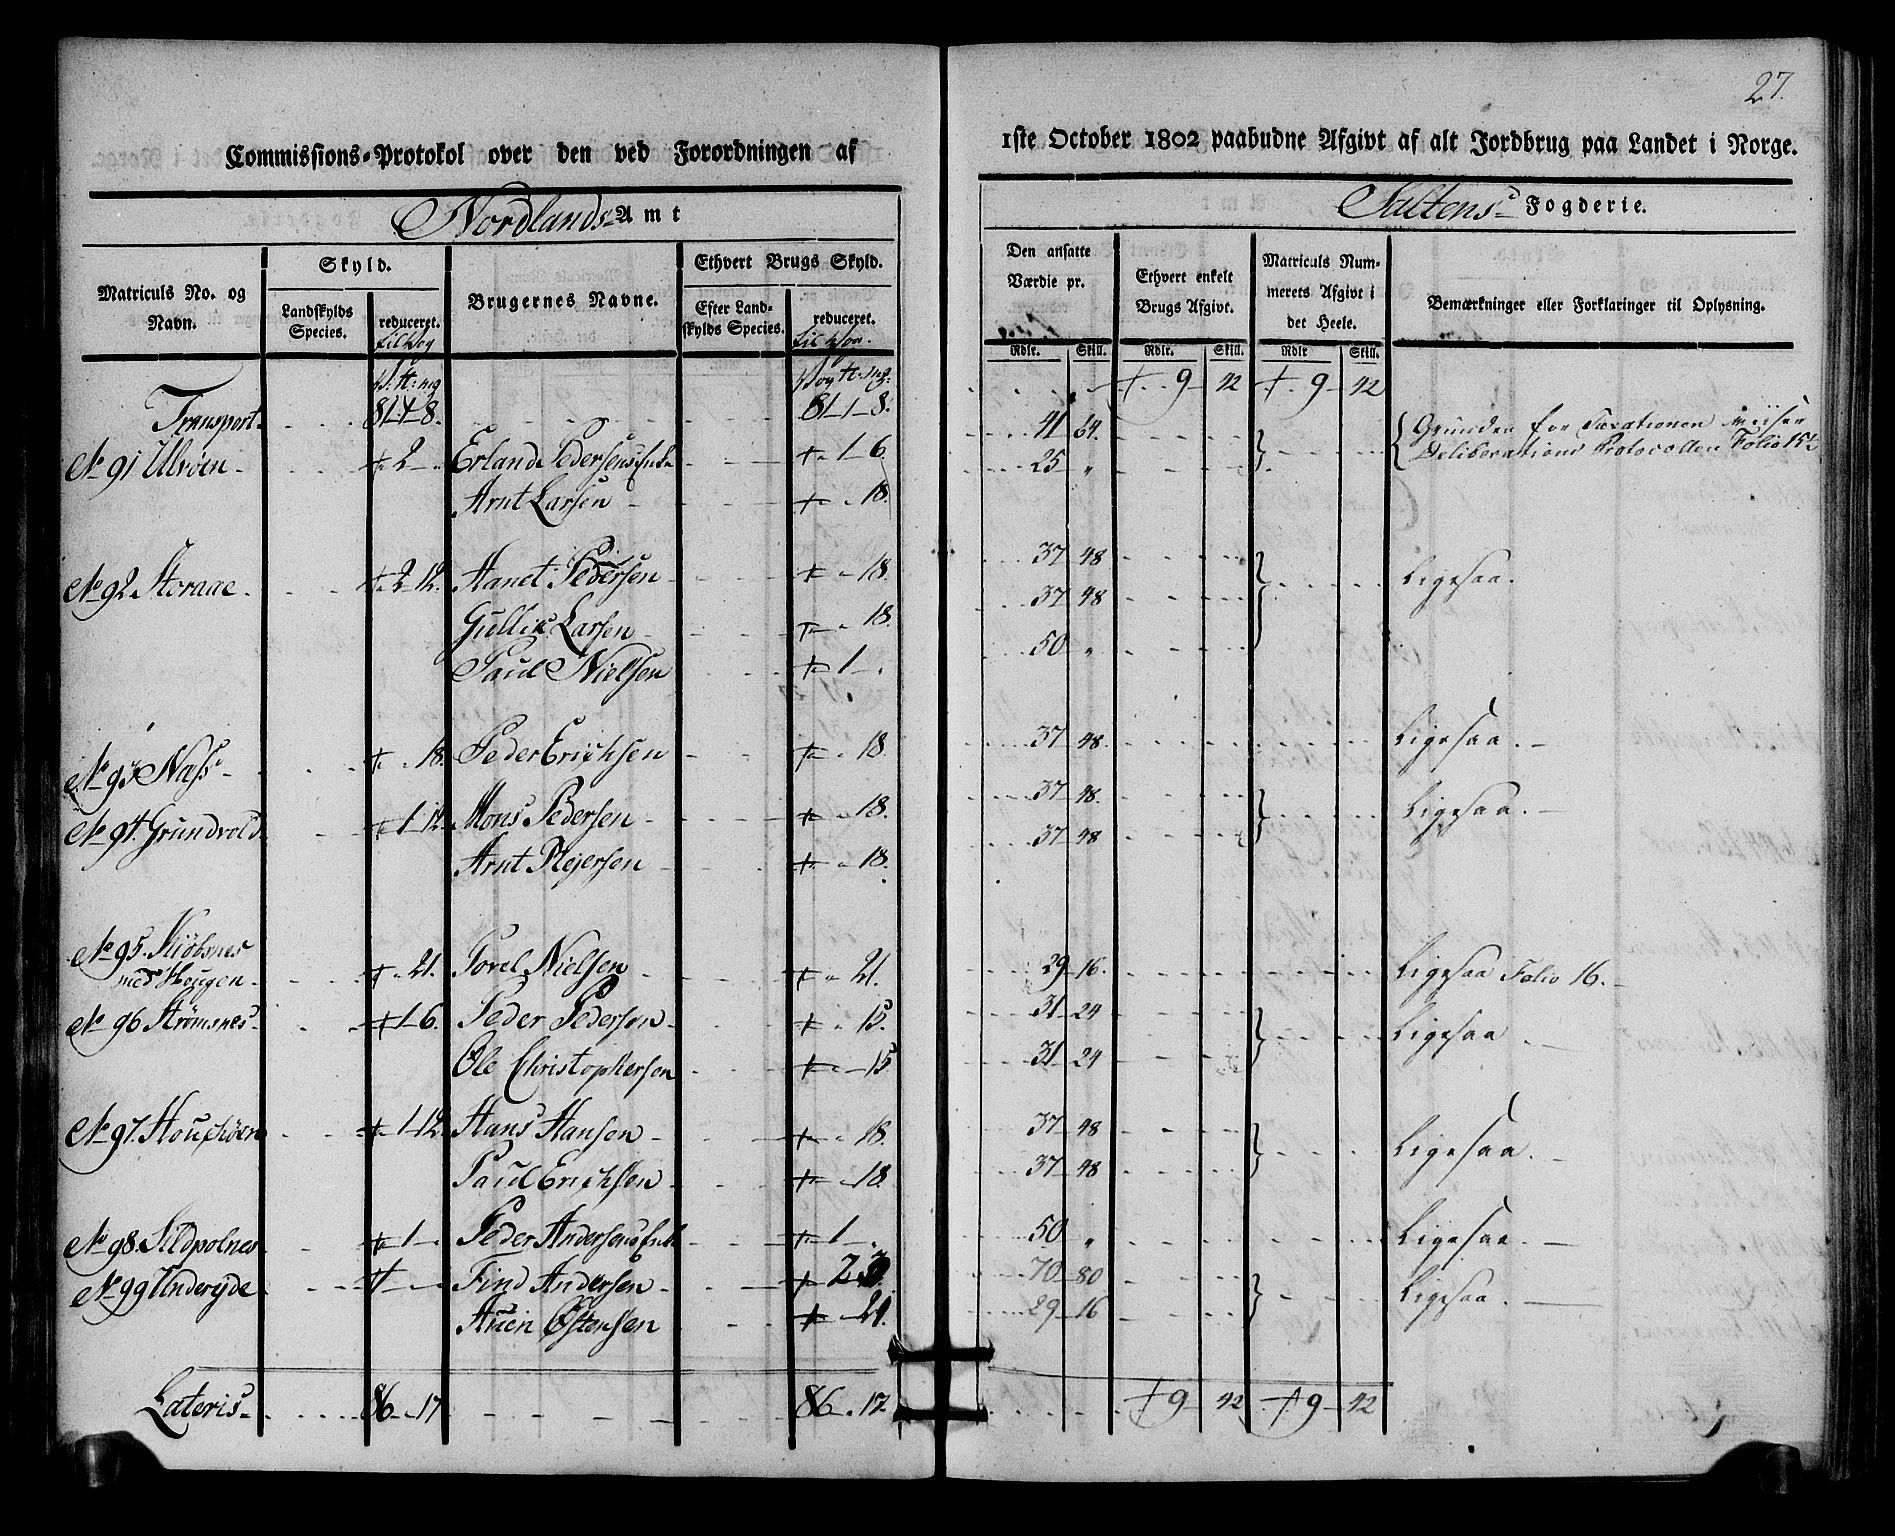 27.
Commissions-Protokol over den ved Forordningen af
1ste October 1802 paabudne Afgivt af alt Jordbrug paa Landet i Norge.
Nordlands Amt
Saltens Fogderie.
Matriculs No. og Navn.
Skyld.
Landskylds Species.
reduceret. til Vog
Brugernes Navne.
Ethvert Brugs Skyld.
Efter Landskylds Species.
reduceret. til Vog.
Den ansatte Værdie pr.
Ethvert enkelt Brugs Afgivt.
Matriculs Nummerets Afgivt i det Heele.
Bemærkninger eller Forklaringer til Oplysning.
Rdlr. Skill. Rdlr. Skill. Rdlr Skill.
Transport. 81-1-8. 81-1-8. 9-42 9-42
No 91 Ulvöen 2 Erland Pedersens Enke 1-6 41-64. Grunden for Taxationen viiser
Deliberations Protocollen Folio 15
Arnt Larsen 18. 25 "
No 92 Storaae 2-12. Aanet Pedersen 18. 37-48 Ligesaa.
Gullik Larsen 18. 37-48
Paul Nielsen 1 50 "
No 93 Næss 18. Peder Erichsen 18 37-48. Ligesaa.
No 94. Grundvold 1-12 Mons Pedersen 18. 37-48. Ligesaa.
Arnt Rejersen 18. 37-48
No 95. Kiöbsnes
med Hougen 21. Torel Nielsen 21. 29-16. Ligesaa Folio 16.
No 96 Strömsnes 1-6. Peder Pedersen 15. 31-24 Ligesaa
Ole Christophersen 15 31-24
No 97. 1-12. Hans Hansen 18. 37-48 Ligesaa.
Paul Erichsen 18. 37-48
No 98. Sildpolnes 1 Peder Andersens Enke 1 50 " Ligesaa.
No 99 Underejde Find Andersen 2 3. 70-80 Ligesaa.
Östensen 21. 29-16
Lateris 86-17 86.17. 9-42 9-42